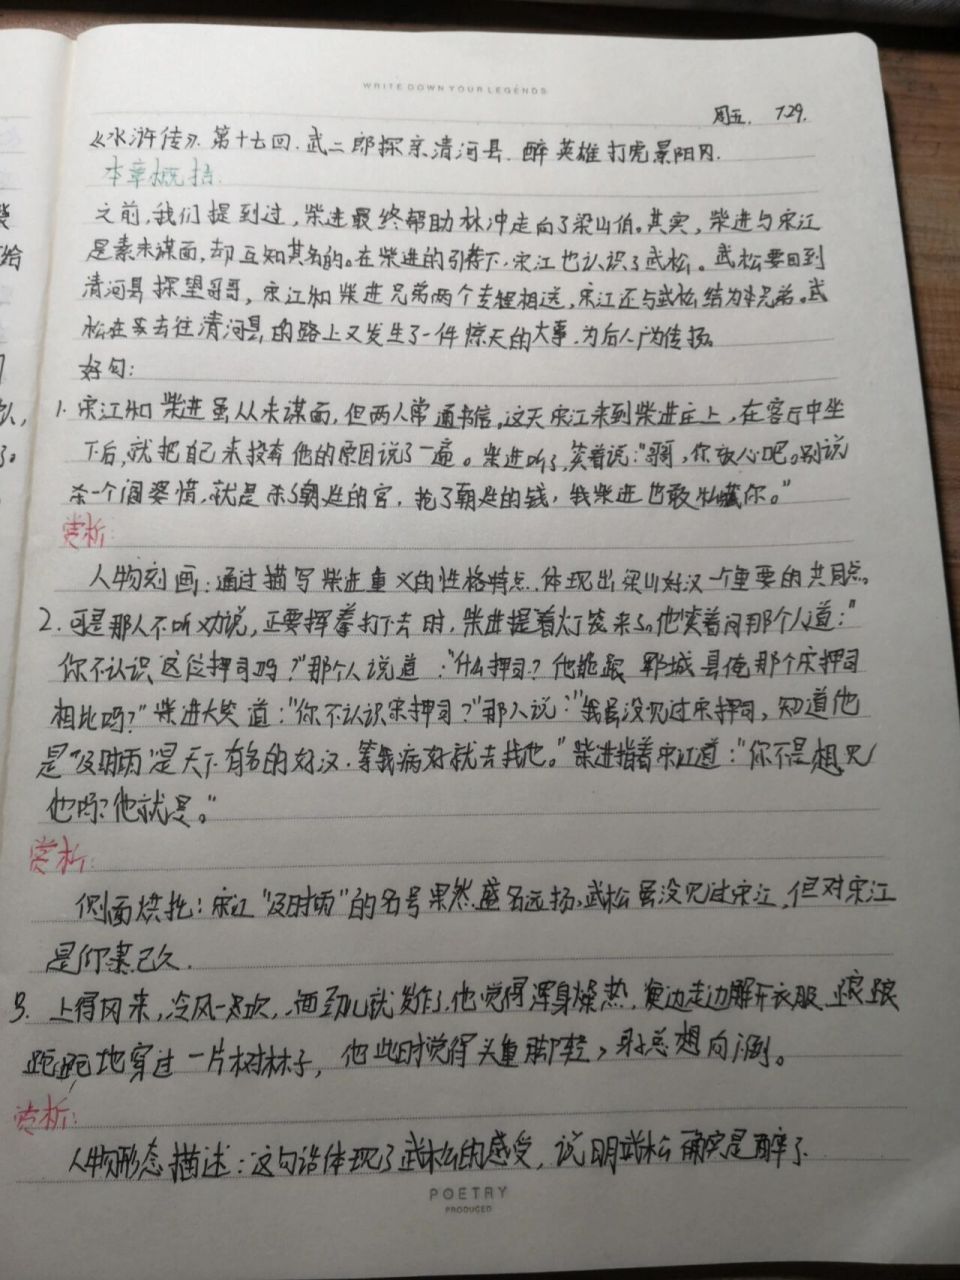 WRITE DOWN YOUR LEGENDS
周五. 7.29.
《水浒传》. 第十七回. 武二郎探亲清河县. 醉英雄打虎景阳冈.
本章概括.
之前,我们提到过,柴进最终帮助林冲走向了梁山伯。其实,柴进与宋江
是素未谋面,却互知其名的。在柴进的引荐下,宋江也认识了武松。武松要回到
清河县探望哥哥,宋江和柴进兄弟两个专程相送,宋江还与武松结为兄弟。武
松在去往清河县的路上又发生了一件惊天的大事,为后人广为传扬。
好句:
1. 宋江和柴进虽从未谋面,但两人常通书信。这天宋江来到柴进庄上,在客厅中坐
下后,就把自己来投奔他的原因说了一遍。柴进听了,笑着说:"哥哥,你放心吧。别说
杀一个阎婆惜,就是杀了朝廷的官,抢了朝廷的钱,我柴进也敢私藏你。"
赏析:
人物刻画:通过描写柴进重义的性格特点,体现出梁山好汉一个重要的共同点。
2. 可是那人不听劝说,正要挥拳打下去时,柴进提着灯笼来了。他笑着问那个人道:"
你不认识这位押司吗?"那个人说道:"什么押司?他能跟郓城县俺那个宋押司
相比吗?"柴进大笑道:"你不认识宋押司?"那人说:"我虽没见过宋押司,知道他
是"及时雨"是天下有名的好汉,等我病好就去找他。"柴进指着宋江道:"你不是想见
他吗?他就是。"
赏析:
侧面烘托:宋江"及时雨"的名号果然盛名远扬,武松虽没见过宋江,但对宋江
是仰慕已久.
3. 上得冈来,冷风一吹,酒劲儿就发作了,他觉得浑身燥热,便边走边解开衣服,踉踉
跄跄地穿过一片树林子,他此时觉得头重脚轻,身总想向前倒。
赏析:
人物形态描述:这句话体现了武松的感受,说明武松确实是醉了.
POETRY
PRODUCED